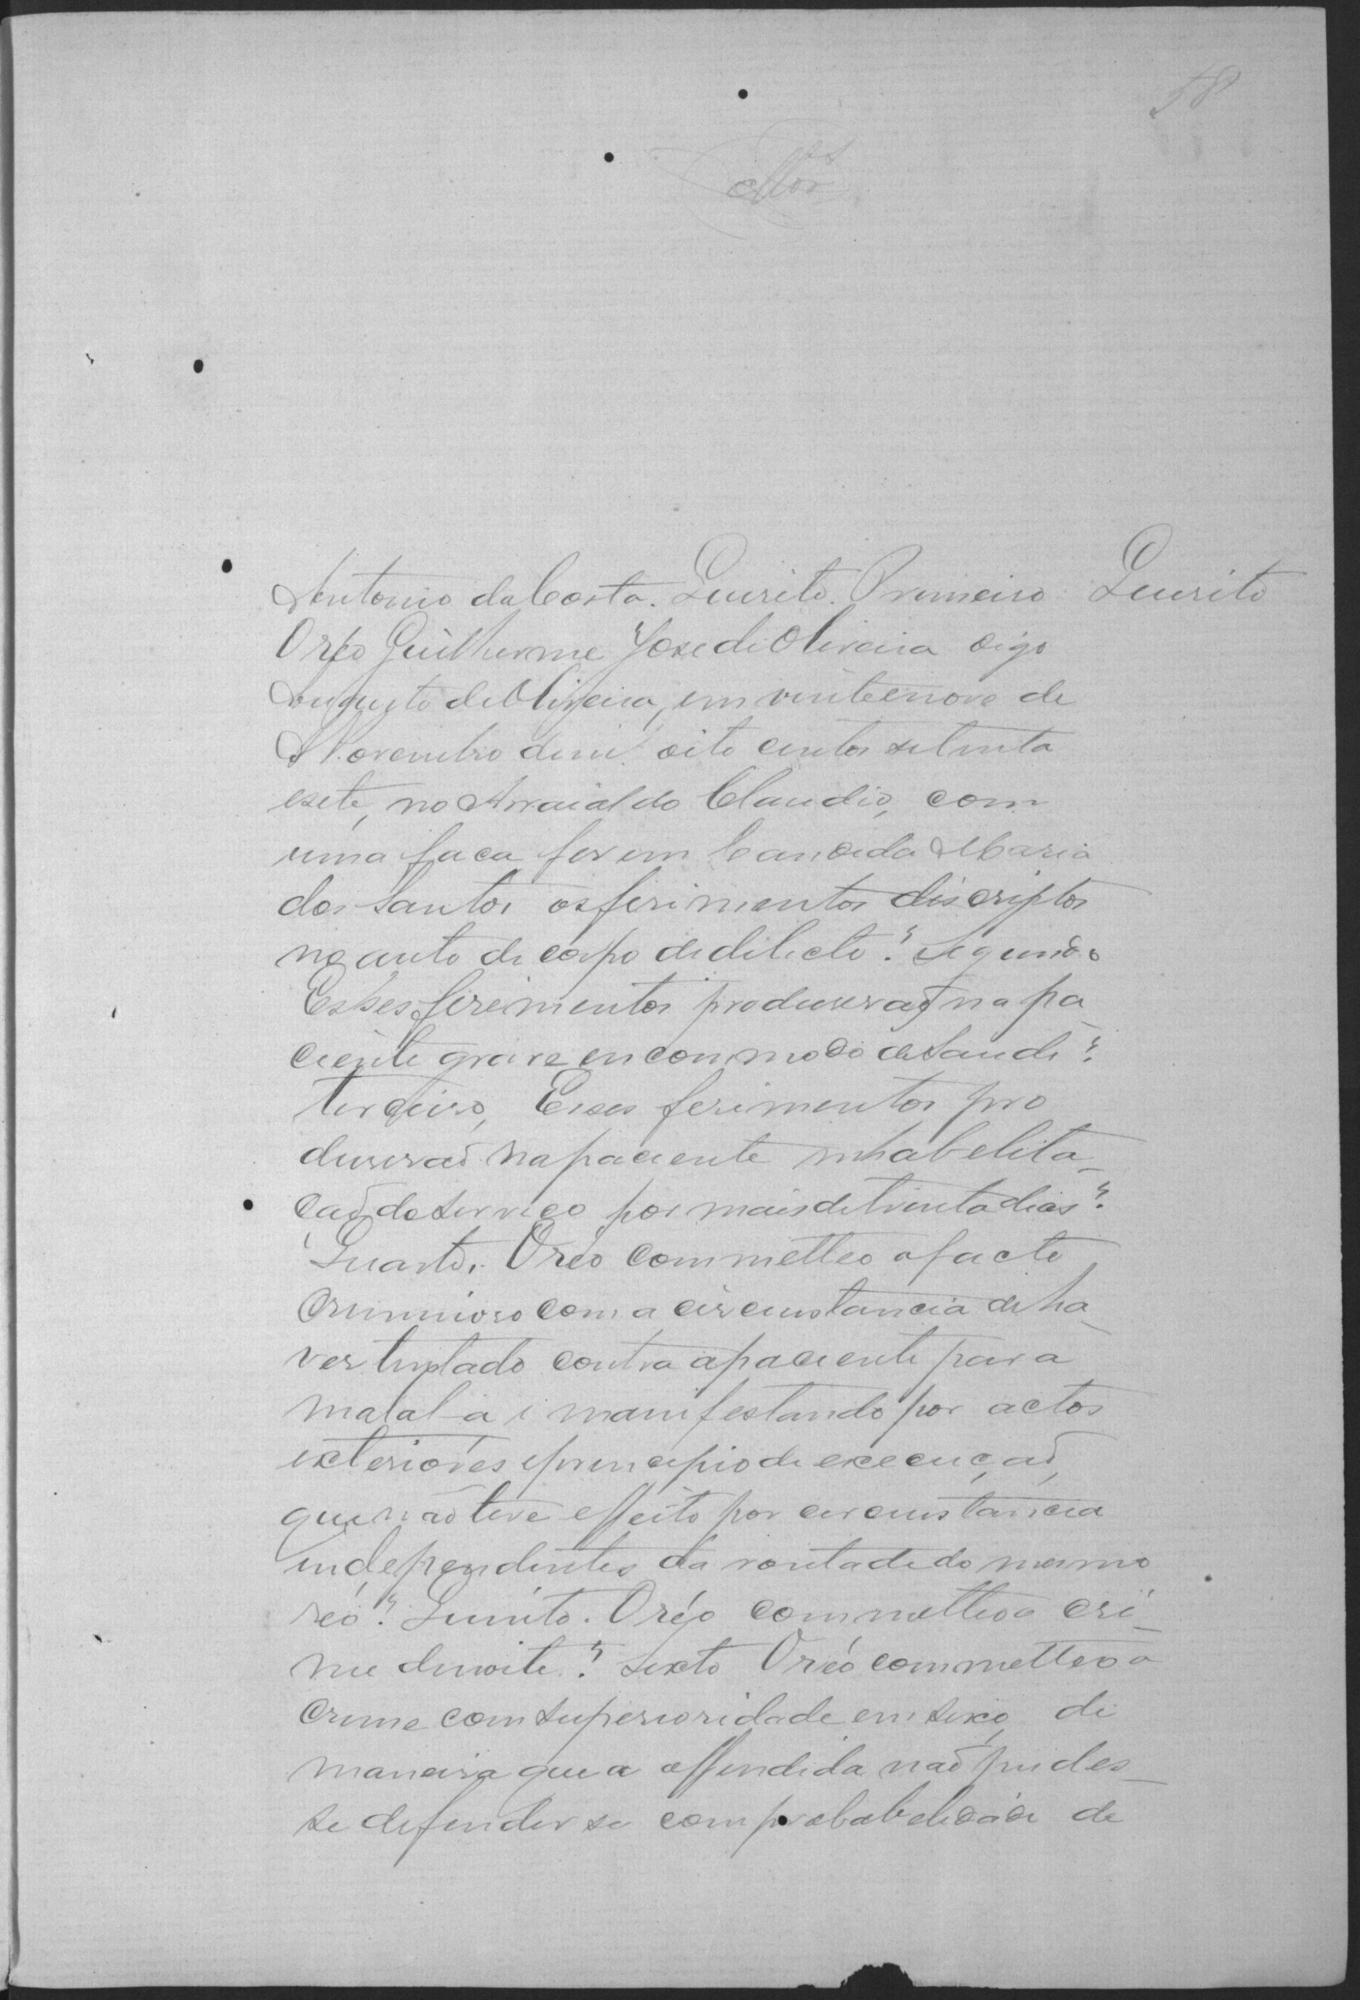 58
Antonio da Costa. Quesito. Primeiro Quesito
O réo Guilherme José de Oliveira digo
Augusto de Oliveira, em vinte e nove de
Novembro de mil oito centos setenta
e sete, no Arraial do Claudio, com
uma faca fez em Candida Maria
dos Santos os ferimentos discriptos
no auto de corpo de delicto? Segundo
Esses ferimentos produserão na pa
ciente grave encommodo de saude?
terceiro, Esses ferimentos pro
duserão na paciente inhabelita-
ção de serviço por mais de trinta dias?
Quarto. O réo commetteo o facto
criminoso com a circunstancia de ha-
ver tentado contra a paciente para
matal-a i manifestando por actos
exteriores e principio de execução,
que não teve effeito por circunstancia
independentes da vontade do mesmo
réo? Quinto. O réo commetteo o cri-
me de noite? Sexto O réo commetteo o
crime com superioridade em sexo, de
maneira que a offendida não pudes-
se defender se com probabelidade de